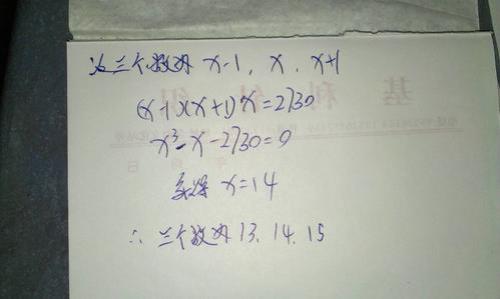 设三个数为 x-1, x, x+1
(x-1)(x+1)x=2730
x³-x-2730=0
x=14
∴ 三个数为 13, 14, 15